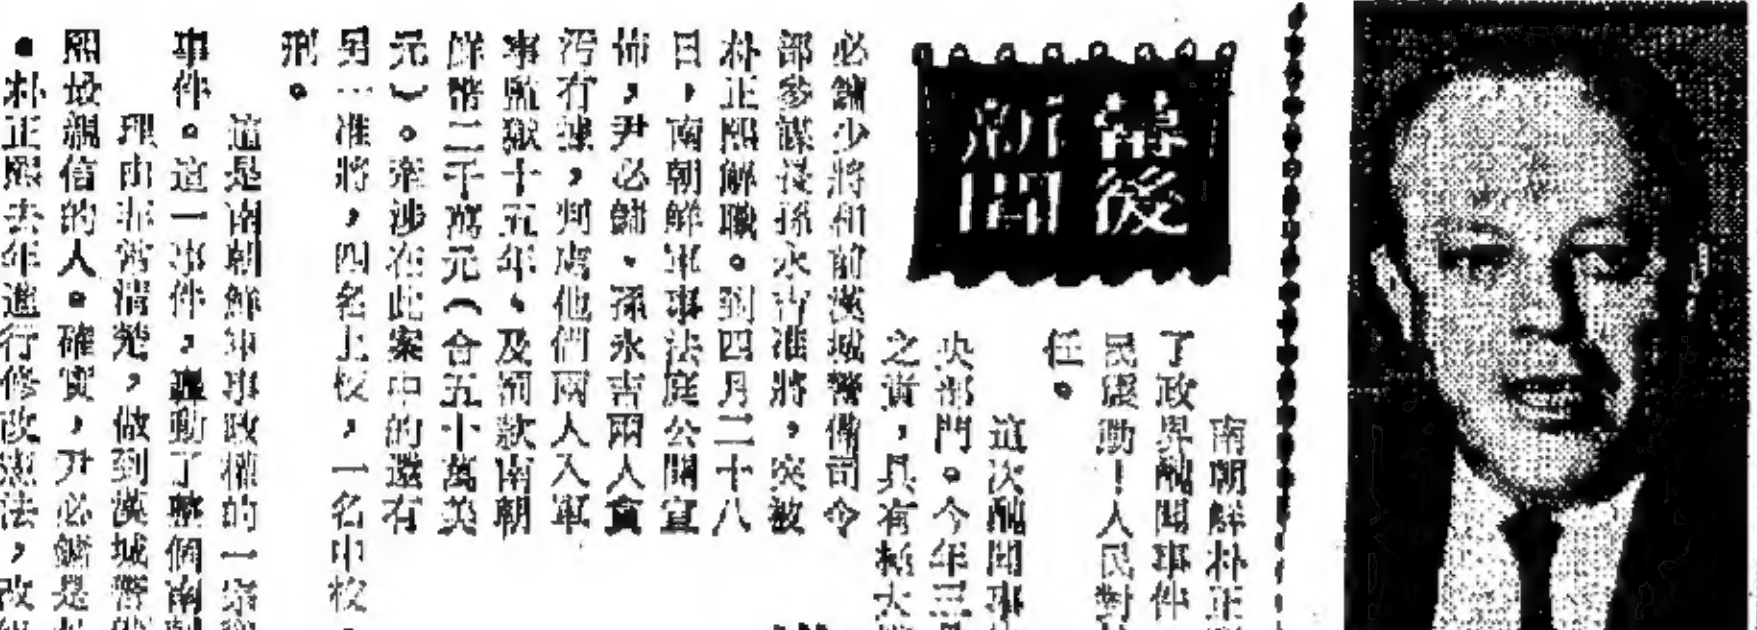 幕後
新聞
南朝鮮朴正
了政界醜聞事件
民震動！人民對
任。
這次醜聞事
央部門。今年三月
之責，具有極大
必鏞少將和前漢城警備司令
部參謀長孫永吉准將，突被
朴正熙解職。到四月二十八
日，南朝鮮軍事法庭公開宣
佈，尹必鏞、孫永吉兩人貪
污有據，判處他們兩人入軍
事監獄十五年、及罰款南朝
鮮幣二千萬元（合五十萬美
元）。牽涉在此案中的還有
另一准將，四名上校，一名中校，
刑。
這是南朝鮮軍事政權的一宗
事件。這一事件，轟動了整個南
理由非常清楚，做到漢城警備
熙最親信的人。確實，尹必鏞是
●朴正熙去年進行修改憲法，改